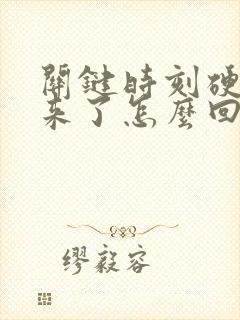 關鍵時刻硬
來了怎麼回
繆毅容